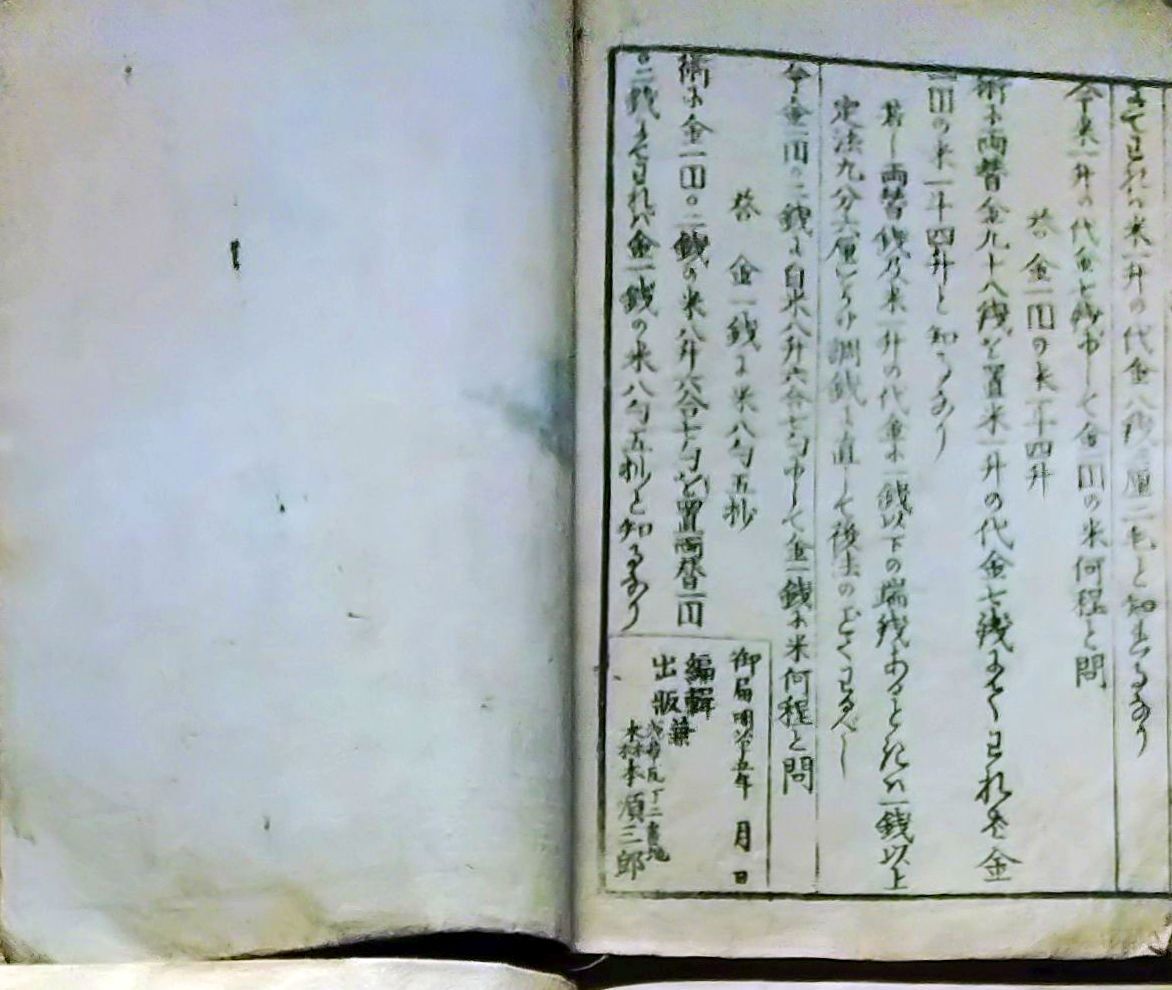 にてわれハ米一升の代金八銭 厘二毛と知るゝなり
今米一升の代金七銭にして金一円の米何程と問
答 金一円の米一斗四升
術に両替金九十八銭を置米一升の代金七銭にてわれバ金
一円の米一斗四升と知るゝなり
若し両替銭乃米一升の代金に一銭以下の端銭あるときハ一銭以上
定法九分六厘をかけ調銭に直して後法のごとくわるべし
今金一円〇二銭に白米八升六合七勺にして金一銭に米何程と問
答 金一銭に米八勺五抄
術に金一円〇二銭の米八升六合七勺を置両替一円
〇二銭にてわれバ金一銭の米八勺五抄と知るゝなり
御届明治十五年 月 日
編輯
出版
兼
丁二番地
本 順三郎